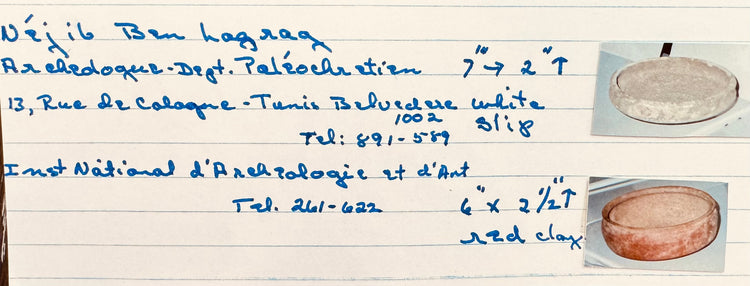 Néjib Ben Lagrag
Archéologue-Dept. Paléochretien 7"→ 2"↑
13, Rue de Cologne - Tunis Belvedere white
1002 slip
Tel: 891-589
Inst National d'Archéologie et d'Art
Tel. 261-622 6" x 2 1/2"↑
red clay